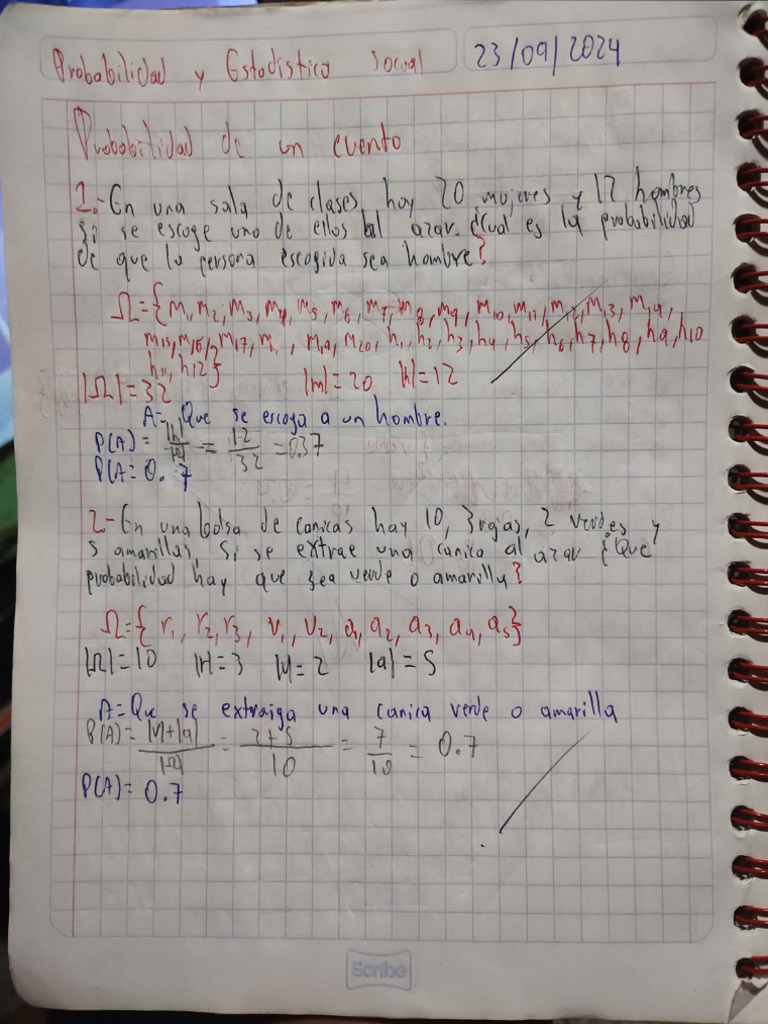 Probabilidad y Estadistica Social
23/09/2024
Probabilidad de un evento
1.- En una sala de clases hay 20 mujeres y 12 hombres
si se escoge uno de ellos al azar. ¿Cual es la probabilidad
de que la persona escogida sea hombre?
Ω={m₁, m₂, m₃, m₄, m₅, m₆, m₇, m₈, m₉, m₁₀, m₁₁, m₁₂, m₁₃, m₁₄,
m₁₅, m₁₆, m₁₇, m , m₁₉, m₂₀, h₁, h₂, h₃, h₄, h₅, h₆, h₇, h₈, h₉, h₁₀
h₁₁, h₁₂}
|Ω|=32 |m|=20 |h|=12
A= Que se escoga a un hombre.
P(A) = |h|/|Ω| = 12/32 = 0.37
P(A= 0. 7
2.- En una bolsa de canicas hay 10, 3 rojas, 2 verdes y
5 amarillas, Si se extrae una canica al azar ¿Que
probabilidad hay que sea verde o amarilla?
Ω={ r₁, r₂, r₃, v₁, v₂, a₁, a₂, a₃, a₄, a₅}
|Ω|=10 |r|=3 |v|=2 |a|=5
A= Que se extraiga una canica verde o amarilla
P(A)= |v|+|a|/|Ω| = 2+5/10 = 7/10 = 0.7
P(A)= 0.7
Scribe